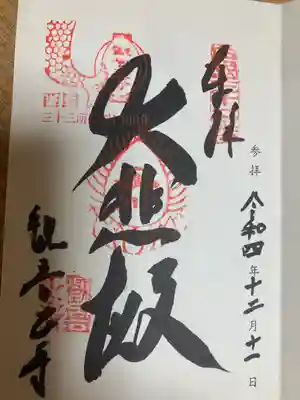 参拝 令和四年十二月十一日
奉拝
大悲殿
西国
三十三所
観音正寺